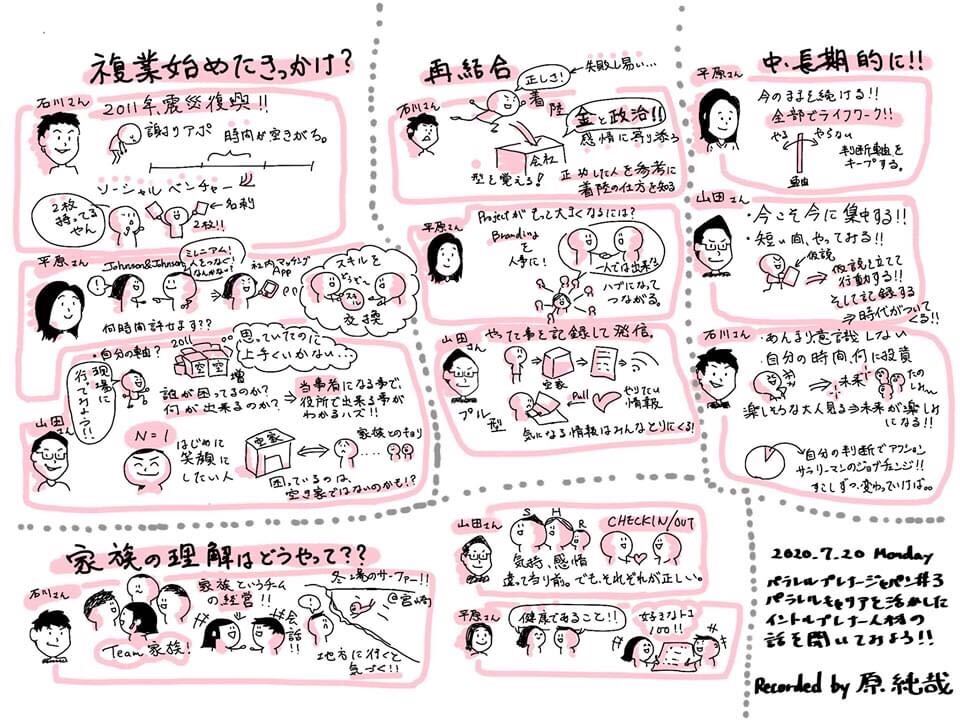 複業始めたきっかけ?
石川さん
2011年震災復興!!
謝りアポ
時間が空きがち。
ソーシャルベンチャー
2枚
持ってる
やん
名刺
2枚!!
平原さん
Johnson&Johnson
ミレニアル!
人をつなぐ!
なんかない?
社内マッチング
App
スキルを
どうぞ〜
スキル
交換
何時間許せます??
山田さん
現場に
行ってみよう!!
・自分の軸?
2011
空 空 増
思っていたのに
上手くいかない...
誰が困ってるのか?
何が出来るのか?
⇒当事者になる事で、
役所で出来る事が
わかるハズ!!
N=1
はじめに
笑顔に
したい人
空家
家族とのキョリ
困っているのは、
空き家ではないのかも!?
再結合
石川さん
正しさ!
←失敗し易い...
着陸
金と政治!!
感情に寄り添う
会社
型を覚える!
正功した人を参考に
着陸の仕方を知る
平原さん
Projectがもっと大きくなるには?
Branding
を
大事に!
一人では出来ない
ハブになって
つながる。
山田さん
やった事を記録して発信。
空家
プル型
Pull
やりたい
情報
気になる情報はみんなとりにくる!
中・長期的に!!
平原さん
今のままを続ける!!
全部でライフワーク!!
やる
やらない
軸
判断軸を
キープする。
山田さん
・今こそ今に集中する!!
・短い間、やってみる!!
仮説
⇒仮説を立てて
行動する!!
そして記録する
⇒時代がついて
くる!!
石川さん
・あんまり意識しない
・自分の時間、何に投資
未来
たの
しみ〜
楽しそうな大人見る⇒未来が楽しみ
になる!!
自分の判断でアクション
サラリーマンのジョブチェンジ!!
すこしずつ、変わっていけば。。
家族の理解はどうやって??
石川さん
家族というチーム
の経営!!
Team家族!
会話!!
冬場のサーファー!!
@宮崎
地方に行くと
気づく!!
山田さん
S H R
CHECKIN/OUT
気持、感情
違って当り前。でも、それぞれが正しい。
平原さん
健康であること!!
好きなトコ
100!!
2020.7.20 Monday
パラレルプレナージャパン#3
パラレルキャリアを活かした
イントラプレナー人材の
話を聞いてみよう!!
Recorded by 原 純哉